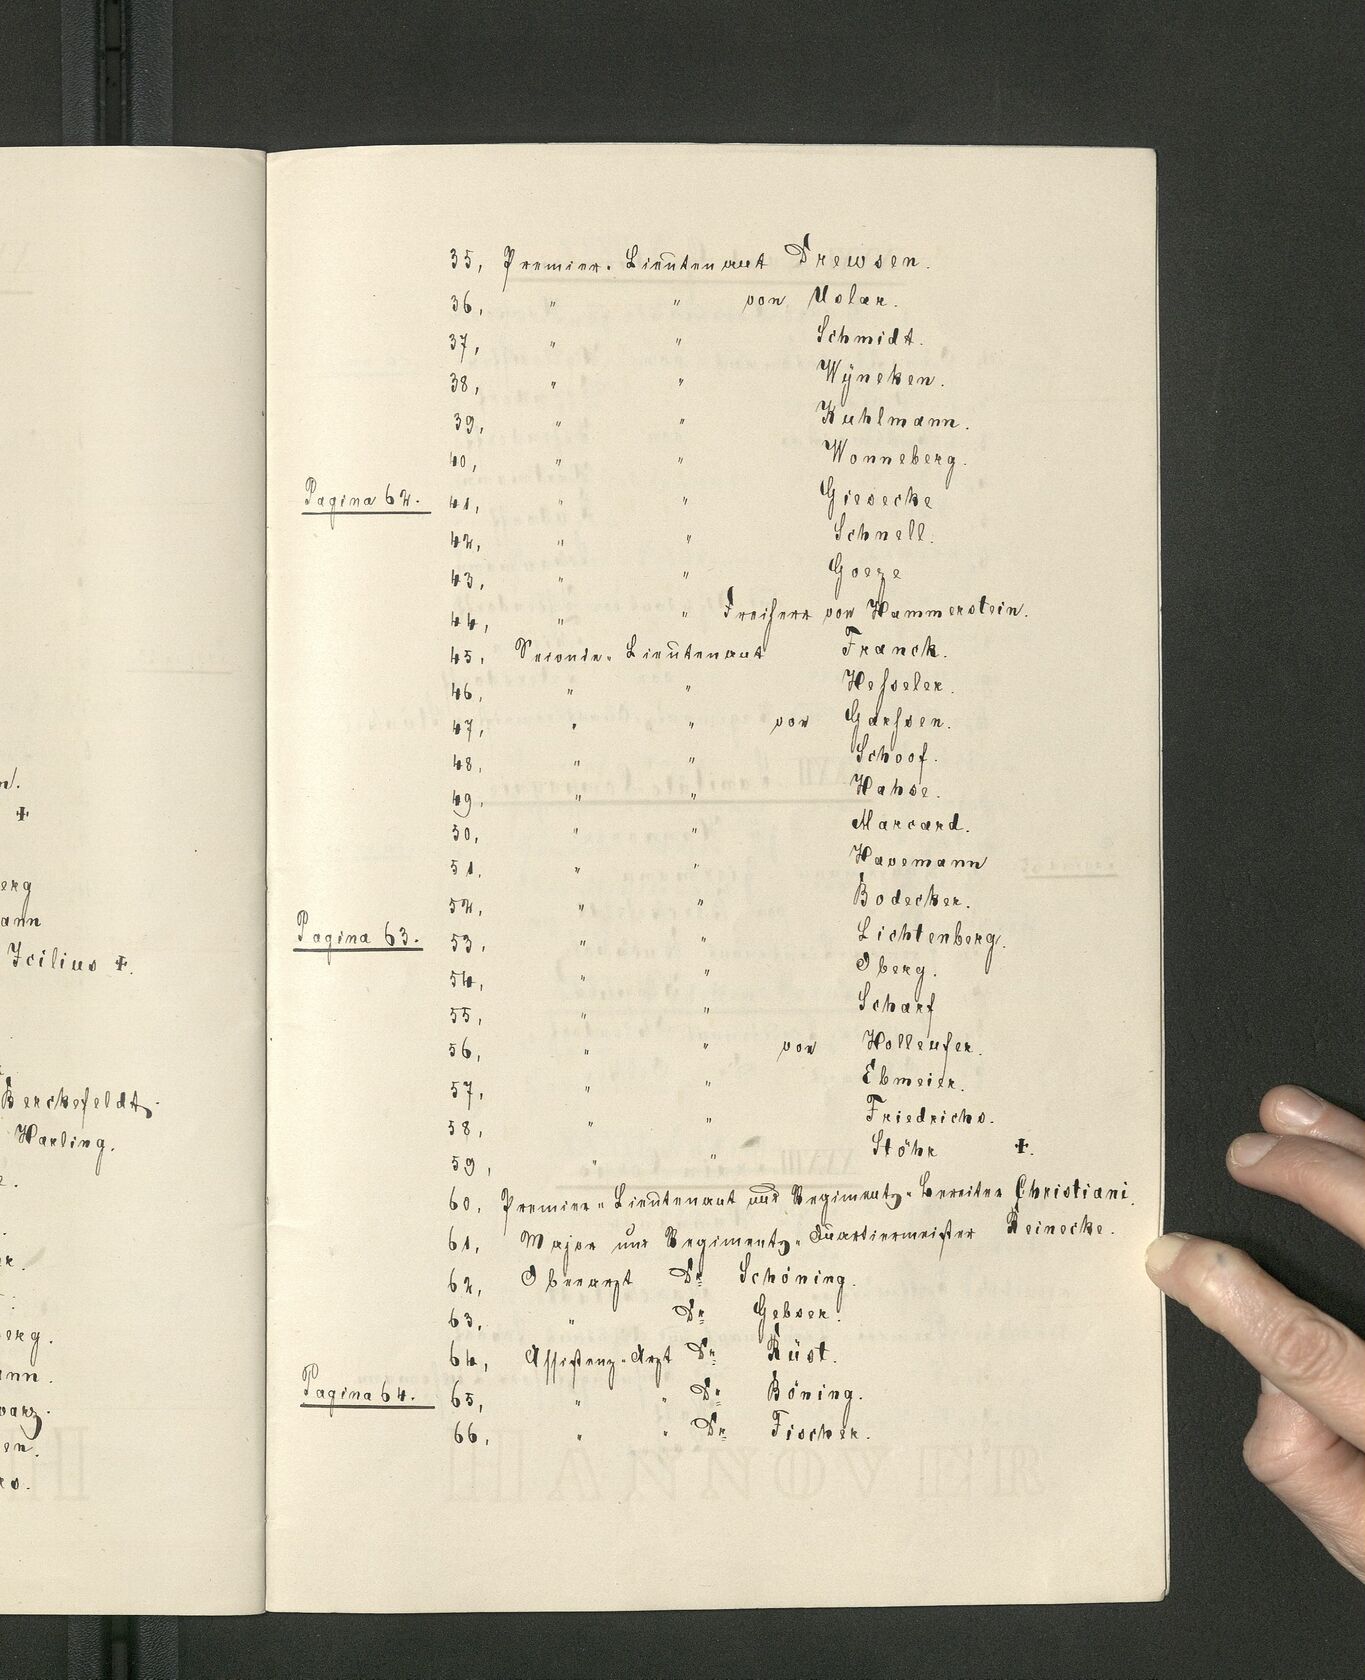 n.
+
erg
ann
Icilius +.
Berckefeldt.
Harling.
e.
er.
erg.
ann.
warz.
en.
rs.
35, Premier-Lieutenant Drewsen.
36, " " von Uslar.
37, " " Schmidt.
38, " " Wÿneken.
39, " " Kuhlmann.
40, " " Wonneberg.
Pagina 62. 41, " " Giesecke
42, " " Schnell.
43, " " Goeze
44, " " Freiherr von Hammerstein.
45, Seconde-Lieutenant Franck.
46, " " Hesseler.
47, " " von Garssen.
48, " " Schoof.
49, " " Hahse.
50, " " Marcard.
51, " " Havemann
52, " " Bodecker.
Pagina 63. 53, " " Lichtenberg.
54, " " Oberg.
55, " " Scharf
56, " " von Holleufer.
57, " " Ebmeier.
58, " " Friedrichs.
59, " " Stöhr +.
60, Premier-Lieutenant und Regiments-Bereiter Christiani.
61, Major und Regiments-Quartiermeister Reinecke.
62, Oberarzt Dr Schöning.
63, " Dr Gebser.
64, Assistenz-Arzt Dr Rüst.
Pagina 64. 65, " " Dr Böning.
66, " " Dr Fischer.